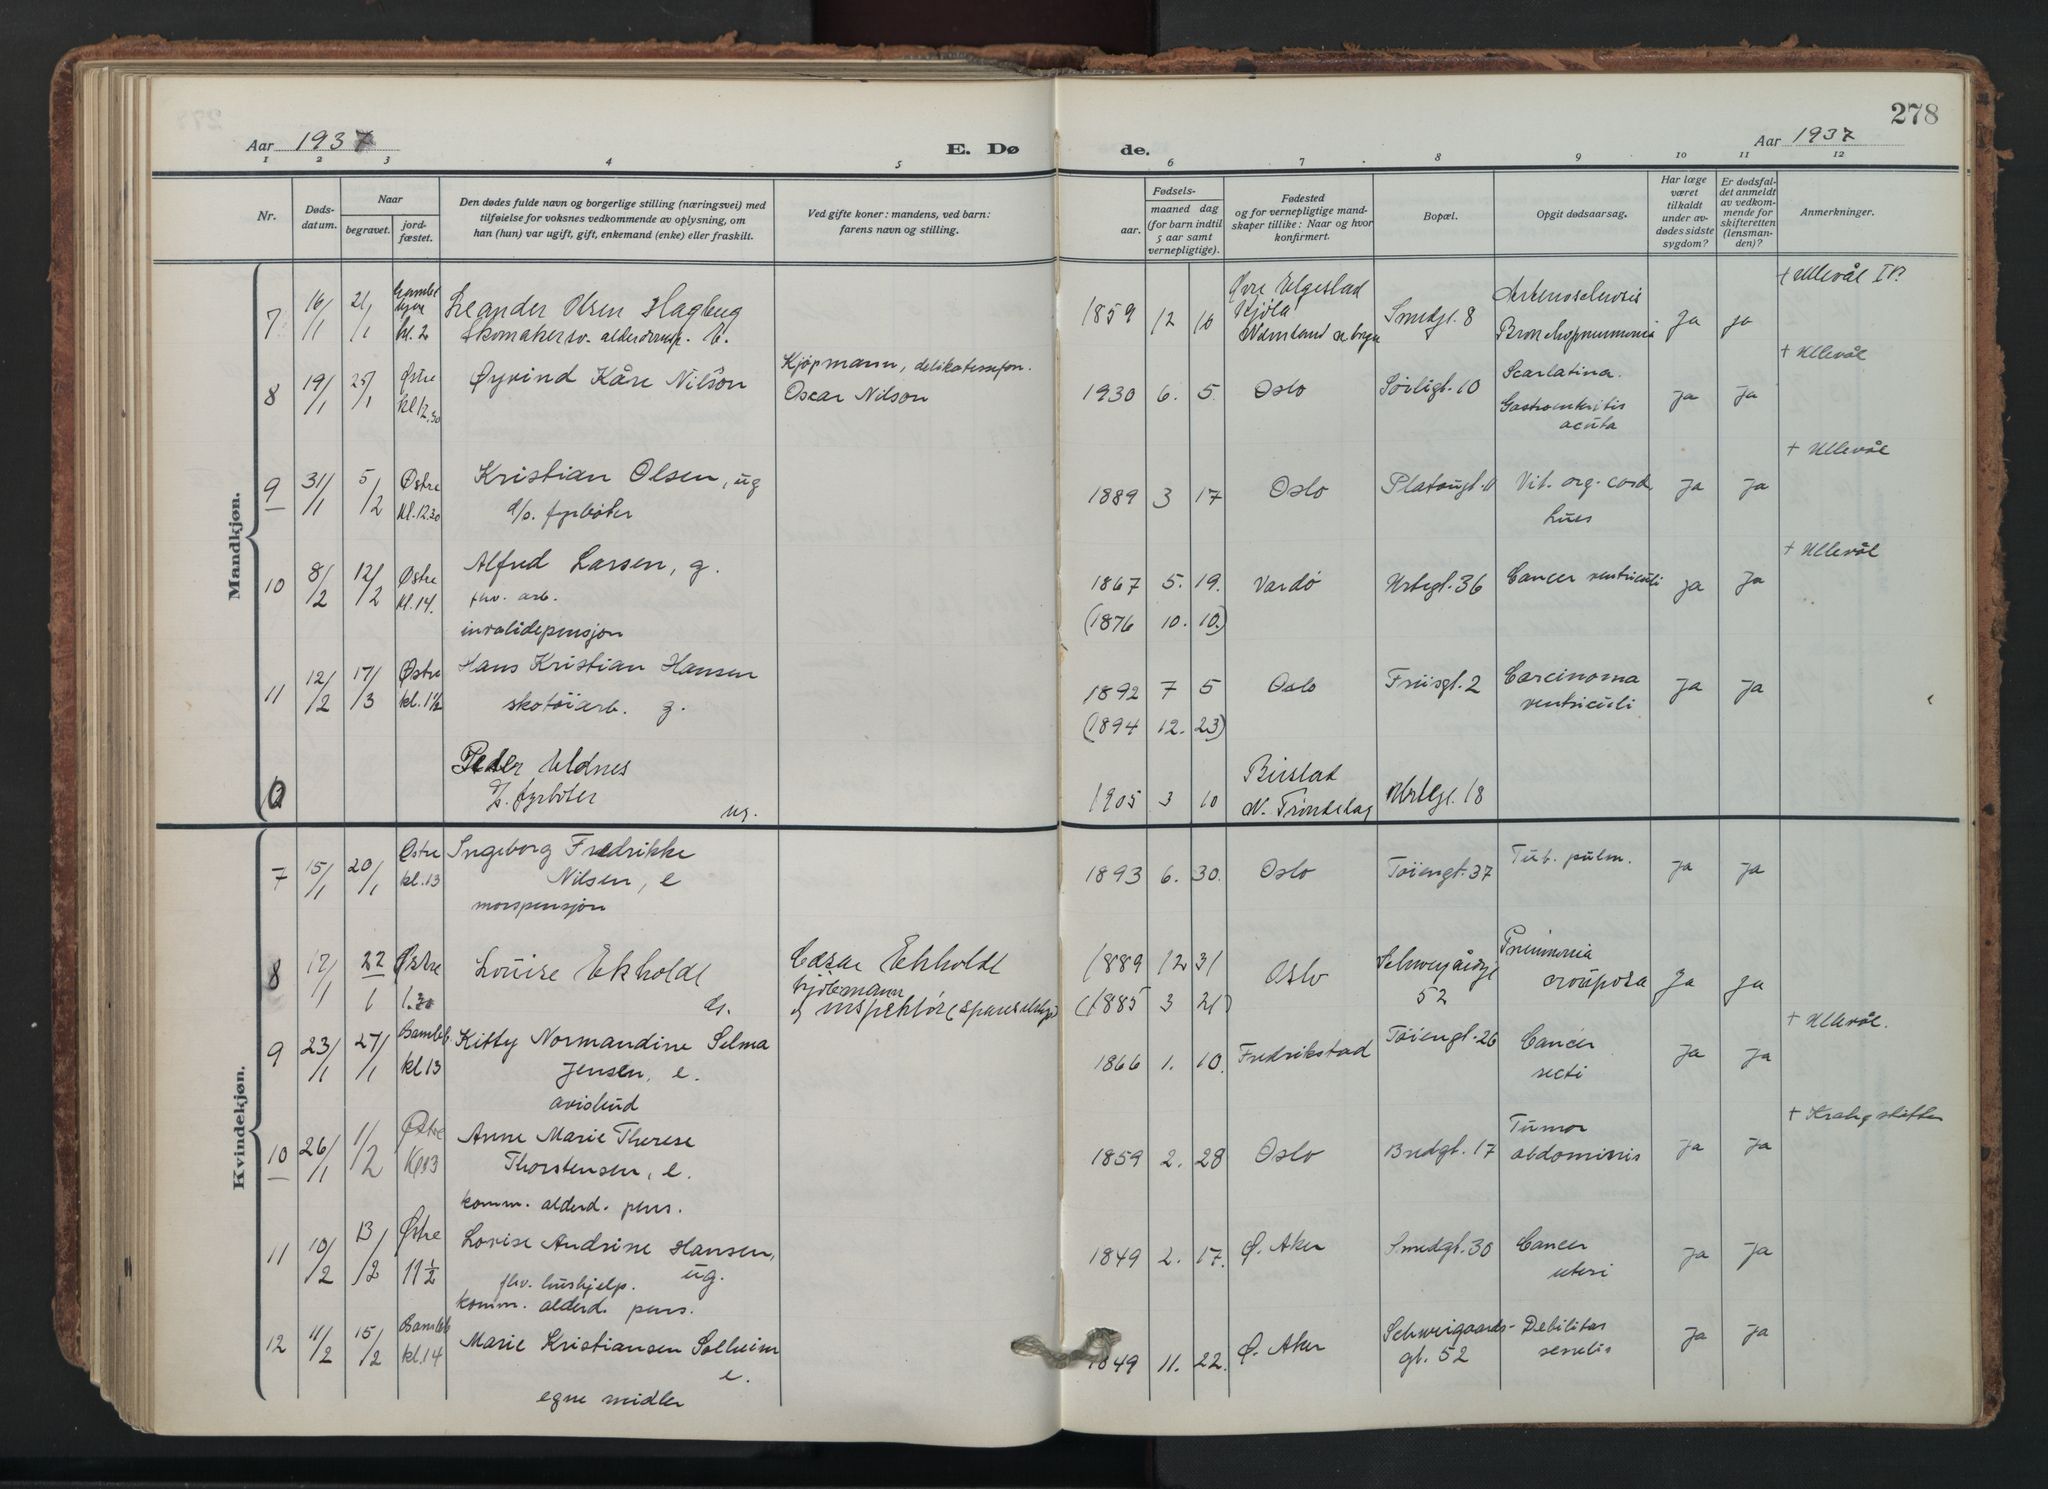 278
Aar 1937
E. Dø
de.
Aar 1937
1 2 3 4 5 6 7 8 9 10 11 12
Nr.
Døds-
datum.
Naar
begravet.
jord-
fæstet.
Den dødes fulde navn og borgerlige stilling (næringsvei) med
tilføielse for voksnes vedkommende av oplysning, om
han (hun) var ugift, gift, enkemand (enke) eller fraskilt.
Ved gifte koner: mandens, ved barn:
farens navn og stilling.
Fødsels-
aar.
maaned dag
(for barn indtil
5 aar samt
vernepligtige).
Fødested
og for vernepligtige mand-
skaper tillike: Naar og hvor
konfirmert.
Bopæl.
Opgit dødsaarsag.
Har læge
været
tilkaldt
under av-
dødes sidste
sygdom?
Er dødsfal-
det anmeldt
av vedkom-
mende for
skifteretten
(lensman-
den)?
Anmerkninger.
Mandkjøn.
7 16/1 21/1 kl. 2
Leander Olsen Hagberg
Skomakersv.
1859 12 10
Smedgt. 8
Arteriosclerosis
Bronchopneumonia
ja ja
+ Ullevål
8 19/1 25/1 Østre
kl 12.30
Øyvind Kåre Nilson
Kjøpmann,
Oscar Nilson
1930 6. 5
Oslo
Sørligt. 10
Scarlatina.
Gastroenteritis
acuta
ja ja
+ Ullevål
9 31/1 5/2 Østre
kl. 12.30
Kristian Olsen, ug
d/s. fyrbøter
1889 3 17
Oslo
Platougt. 11
Vit. org. cord
Lues
ja ja
+ Ullevål
10 8/2 12/2 Østre
kl. 14.
Alfred Larsen, g.
fhv. arb.
invalidepensjon
1867 5. 19.
(1876 10. 10.)
Vardø
Urtegt. 36
Cancer ventriculi
ja ja
+ Ullevål
11 12/2 17/3 Østre
kl. 1½
Hans Kristian Hansen
skotøiarb. g.
1892 7 5
(1894 12. 23)
Oslo
Friisgt. 2
Carcinoma
ventriculi
ja ja
0
Peder Uldnes
d/s. fyrbøter
ug.
1905 3 10
N. Trøndelag
Urtegt. 18
Kvindekjøn.
7 15/1 20/1 Østre
kl. 13
Ingeborg Fredrikke
Nilsen, e
morspensjon
1893 6. 30.
Oslo
Tøiengt. 37
Tub. pulm.
ja ja
8 17/1 22/1 Østre
1.30
Louise Ekholdt
Cæsar Ekholdt
kjøbmann
og inspektør
1889 12 31
(1885 3 21)
Oslo
52
Pneumonia
crouposa
ja ja
9 23/1 27/1
kl 13
Kitty Normandine Selma
Jensen, e.
avisbud
1866 1. 10.
Fredrikstad
Tøiengt. 26
Cancer
recti
ja ja
+ Ullevål.
10 26/1 1/2 Østre
Kl 13
Anne Marie Therese
Thorstensen, e.
komm. alderd. pens.
1859 2. 28
Oslo
Bredgt. 17
Tumor
abdominis
ja ja
11 10/2 13/2 Østre
11 ½
Lovise Andrine Hansen,
fhv. hushjelp. ug.
komm. alderd. pens.
1849 2. 17.
Ø. Aker
Smedgt. 30
Cancer
uteri
ja ja
12 11/2 15/2
kl. 14
Marie Kristiansen Solheim
e.
egne midler
1849 11. 22.
Ø. Aker
Schweigaards-
gt. 52
Debilitas
senilis
ja ja